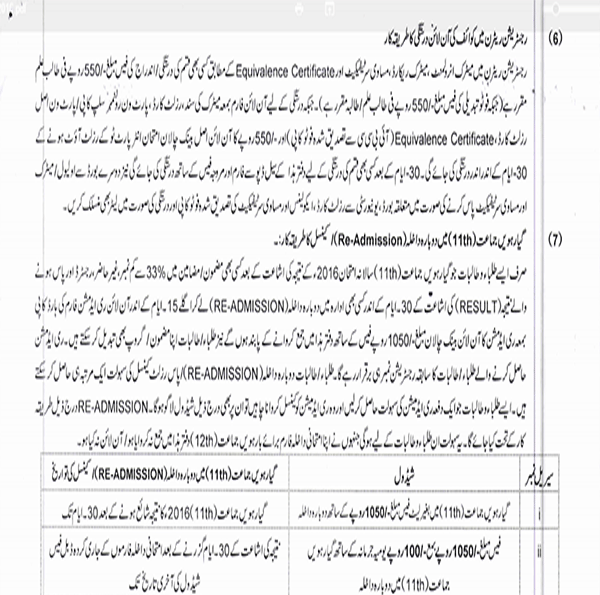 (6) رجسٹریشن ریٹرن میں کوائف کی آن لائن درستگی کا طریقہ کار
رجسٹریشن ریٹرن میں میٹرک انرولمنٹ، میٹرک ریکارڈ، مساوی سرٹیفکیٹ اور Equivalence Certificate کے مطابق کسی بھی قسم کی درستگی/اندراج کی فیس مبلغ -/550 روپے فی طالب علم
مقرر ہے (جبکہ فوٹو تبدیلی کی فیس مبلغ -/550 روپے فی طالب علم/طالبہ مقرر ہے)۔ جبکہ درستگی کے لیے آن لائن فارم بمعہ میٹرک کی سند، رزلٹ کارڈ، پارٹ ون رولنمبر سلپ کاپی/پارٹ ون اصل
رزلٹ کارڈ، Equivalence Certificate (آئی بی سی سی سے تصدیق شدہ فوٹو کاپی) اور -/550 روپے کا آن لائن اصل بینک چالان امتحان انٹر پارٹ ٹو کے رزلٹ آؤٹ ہونے کے
30۔ایام کے اندر اندر درستگی کی جائے گی۔ 30۔ایام کے بعد کسی بھی قسم کی درستگی کے لیے دفتر ہذا کے سیل ڈپو سے فارم اور مروجہ فیس کے ساتھ درستگی کی جائے گی نیز دوسرے بورڈ سے اولیول/میٹرک
اور مساوی سرٹیفکیٹ پاس کرنے کی صورت میں متعلقہ بورڈ، یونیورسٹی سے رزلٹ کارڈ، ایکولینس اور مساوی سرٹیفکیٹ کی تصدیق شدہ فوٹو کاپی اور درستگی کی صورت میں لیٹر بھی منسلک کریں۔
(7) گیارہویں جماعت (11th) میں دوبارہ داخلہ (Re-Admission)/کینسل کا طریقہ کار:۔
صرف ایسے طلباء و طالبات جو گیارہویں جماعت (11th) سالانہ امتحان 2016ء کے نتیجہ کی اشاعت کے بعد کسی بھی مضمون/مضامین میں 33% سے کم نمبر، غیر حاضر، جزوڈ اور پاس ہونے
والے نتیجہ (RESULT) کی اشاعت کے 30۔ایام کے اندر کسی بھی ادارہ میں دوبارہ داخلہ (RE-ADMISSION) لے کر اگلے 15۔ایام کے اندر آن لائن ری ایڈمشن فارم کی ہارڈ کاپی
بمعہ ری ایڈمشن کا آن لائن بینک چالان مبلغ -/1050 روپے فیس کے ساتھ دفتر ہذا میں جمع کروانے کے پابند ہوں گے نیز طلباء/طالبات اپنا مضمون/گروپ بھی تبدیل کر سکتے ہیں۔ ری ایڈمشن
حاصل کرنے والے طلباء/طالبات کا سابقہ رجسٹریشن نمبر ہی برقرار رہے گا۔ طلباء/طالبات دوبارہ داخلہ (RE-ADMISSION)/پاس رزلٹ کینسل کی سہولت ایک مرتبہ ہی حاصل کر سکتے
ہیں۔ ایسے طلباء و طالبات جو ایک دفعہ ری ایڈمشن کی سہولت حاصل کر لیں اور وہ ری ایڈمشن کو کینسل کروانا چاہیں تو ان پر بھی درج ذیل شیڈول لاگو ہو گا۔ RE-ADMISSION درج ذیل طریقہ
کار کے تحت کیا جائے گا۔ یہ سہولت ان طلباء و طالبات کے لیے ہو گی جنہوں نے اپنا امتحانی داخلہ فارم برائے بارہویں جماعت (12th) دفتر ہذا میں جمع نہ کروایا ہو/آن لائن نہ کیا ہو۔
سیریل نمبر شیڈول گیارہویں جماعت (11th) میں دوبارہ داخلہ (RE-ADMISSION)/کینسل کی تواریخ
i گیارہویں جماعت (11th) میں بغیر لیٹ فیس مبلغ -/1050 روپے کے ساتھ دوبارہ داخلہ گیارہویں جماعت (11th) 2016ء کا نتیجہ شائع ہونے کے بعد 30۔ایام تک
ii فیس مبلغ -/1050 روپے بمع -/100 روپے یومیہ جرمانہ کے ساتھ گیارہویں نتیجہ کی اشاعت کے 30۔ایام گزرنے کے بعد امتحانی داخلہ فارموں کے جاری کردہ ڈبل فیس
جماعت (11th) میں دوبارہ داخلہ شیڈول کی آخری تاریخ تک